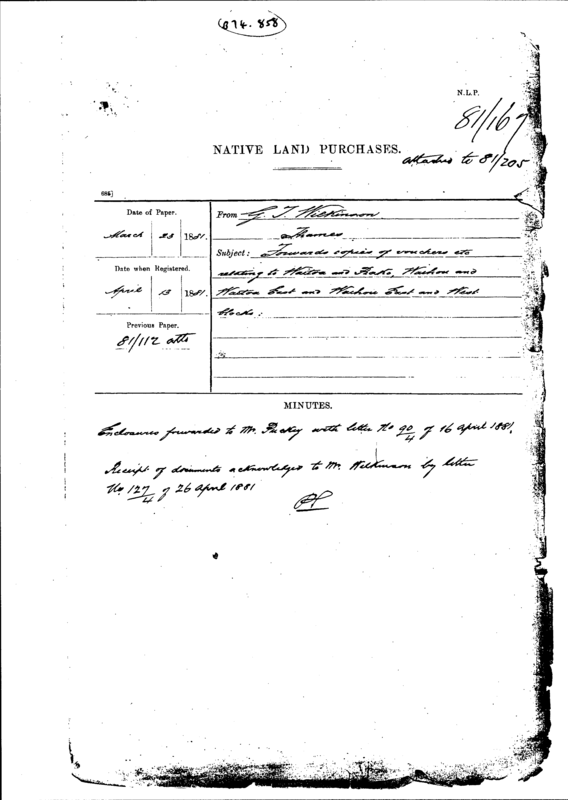 B74.858
N.L.P.
81/167
NATIVE LAND PURCHASES.
attached to 81/205
Date of Paper.
March 23 1881.
Date when Registered.
April 13 1881.
Previous Paper.
81/112 atts
From G. T. Wilkinson
Thames
Subject: Forwards copies of vouchers etc
relating to Waitoa and Piako, Waihou and
Waitoa East and Waihou East and West
blocks.
MINUTES.
Enclosures forwarded to Mr. Puckey with letter No 90/4 of 16 April 1881.
Receipt of documents acknowledged to Mr. Wilkinson by letter
No. 127/4 of 26 April 1881